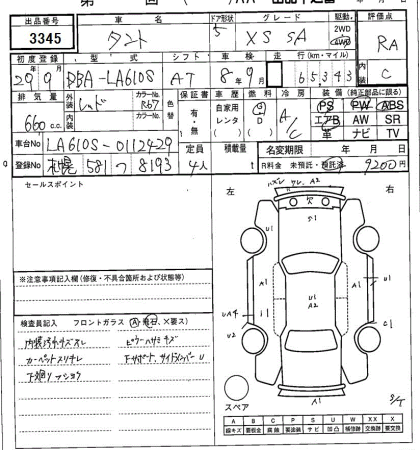 出品番号 車名 ドア形状 グレード 駆動 評価点
3345 タント 5 XS SA 2WD 4WD RA
初度登録 型式 シフト 車検 走行(km・マイル) 内装
29年 9月 DBA-LA610S AT 8年 9月 65,343 C
排気量 外装 カラーNo. 色替 保証書 車歴 燃料 冷房 装備(純正部品に限る)
660cc レッド R67 有・無 自家用 レンタ G D A/C PS PW ABS
エアB AW SR
内装 カラーNo. 革 ナビ TV
車台No LA610S-0112429 定員 積載量 名変期限 年 月 日
登録No 札幌 581 つ 8193 4人 t R料金 未預託・預託済 9200円
セールスポイント 左 右
※注意事項記入欄(修復・不具合箇所および状態等)
検査員記入 フロントガラス (A・飛石、×要ス)
内装汚れキズスレ ピラーハサミキズ
カーペットスリキレ Fサポート,サイドメンバーU
下廻りサビ
ハズレ ワレ,A2
U1 A1 UA4 U2 i1 U1 A2 A1 U1 C1 A1
スペア
A B C P S U W X XX
線キズ 要板金 腐蝕 要塗装 サビ 凹凸 補修跡 交換跡 要交換